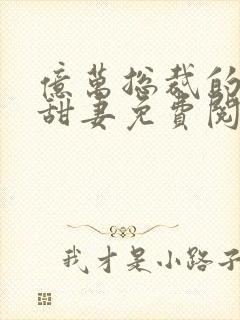 億萬總裁的
甜妻免費閱
我才是小路子